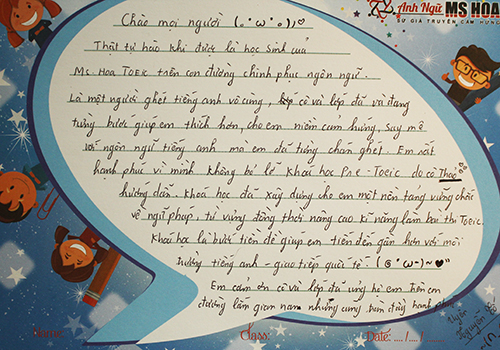 Anh Ngữ MS HOA
SỨ GIẢ TRUYỀN CẢM HỨNG
Chào mọi người (｡°ω°｡)♡
Thật tự hào khi được là học sinh của
Ms. Hoa TOEIC trên con đường chinh phục ngôn ngữ.
Là một người ghét tiếng anh vô cùng, cô và lớp đã và đang
từng bước giúp em thích hơn, cho em niềm cảm hứng, say mê
ngôn ngữ tiếng anh mà em đã từng chán ghét. Em rất
hạnh phúc vì mình không bỏ lỡ khoá học Pre-Toeic do cô Thao
hướng dẫn. Khoá học đã xây dựng cho em một nền tảng vững chắc
về ngữ pháp, từ vựng đồng thời nâng cao kĩ năng làm bài thi TOEIC.
Khoá học là bước tiến để giúp em tiến đến gần hơn với môi
trường tiếng anh - giao tiếp quốc tế. (@°ω-)~♥
Em cảm ơn cô và lớp đã ủng hộ em trên con
đường lắm gian nan nhưng cũng tràn đầy hạnh phúc
Uyên
Nguyễn
Name:
Class:
Date: ..../..../....